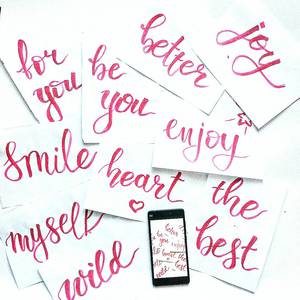 for
you
be
you
better
joy
enjoy
smile
heart
the
best
myself
wild